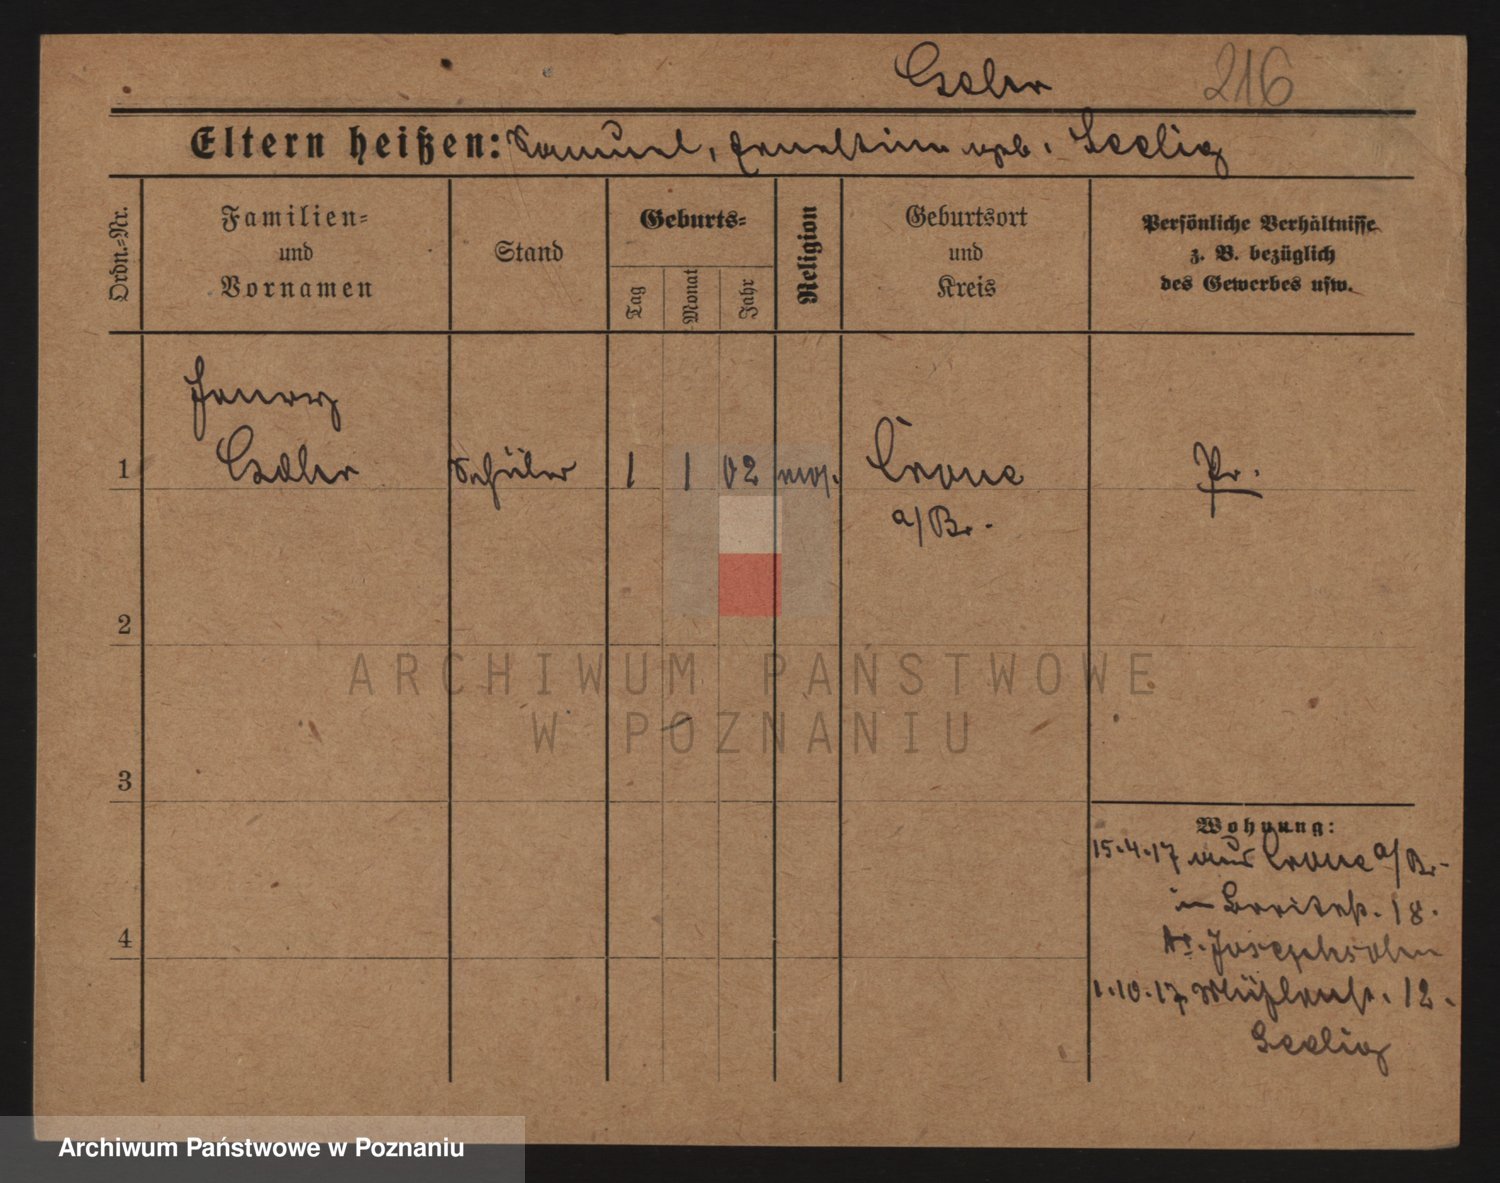 216
Eltern heißen: Samuel, Ernestine geb. Seelig
Ordn.-Nr.
Familien-
und
Vornamen
Stand
Geburts-
Tag
Monat
Jahr
Religion
Geburtsort
und
Kreis
Persönliche Verhältnisse
z. B. bezüglich
des Gewerbes usw.
1
Schüler
1
1
02
mos.
Crone
a/Br.
Pr.
2
3
4
Wohnung:
15.4.17 aus Crone a/Br.
in Breitestr. 18.
Josephsohn
1.10.17 Mühlenstr. 12.
Seelig
ARCHIWUM PAŃSTWOWE
W POZNANIU
Archiwum Państwowe w Poznaniu